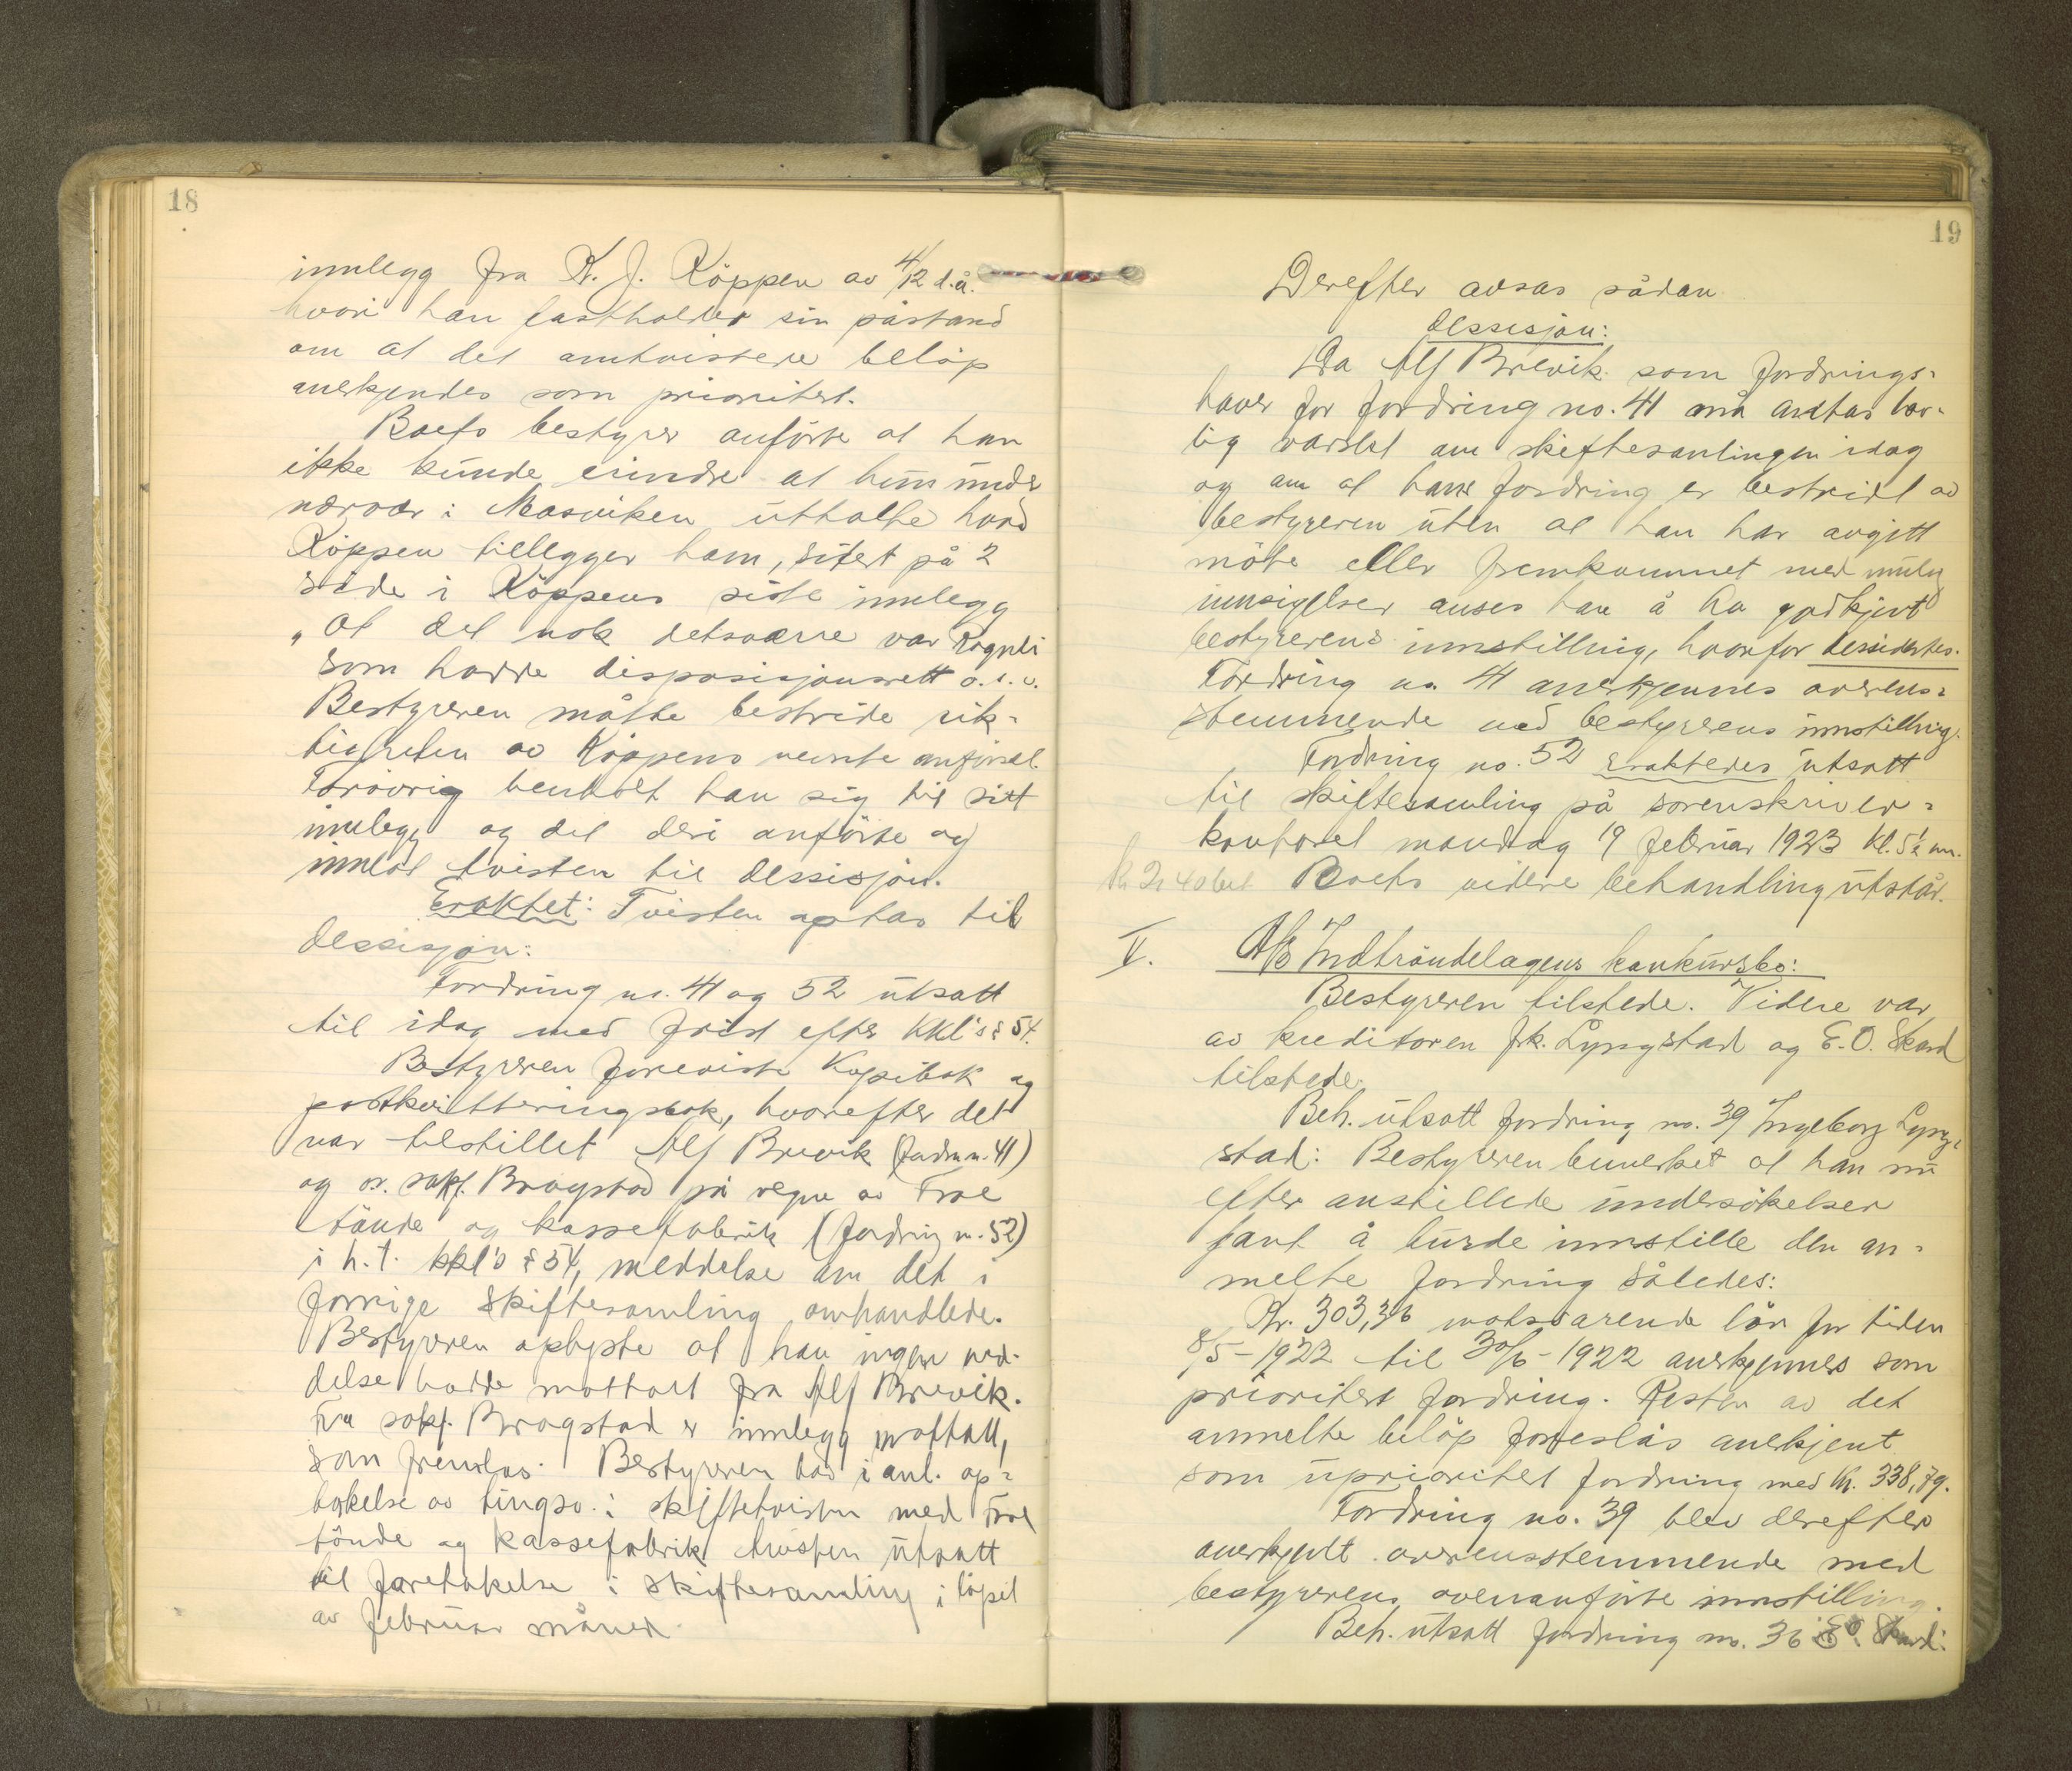 18
innlegg fra K. J. Köppen av 4/12 d.å.
hvori han fastholder sin påstand
om at det omtvistede belöp
anerkjendes som prioritert.
Boets bestyrer anförte at han
ikke kunde erindre at hun under
nærvær i Masviken uttalte hvad
Köppen tillegger ham, sitert på 2
side i Köppens siste innlegg
„at det nok detsværre var
som hadde disposisjonsrett o.s.v.
Bestyreren måtte bestride rik-
tigheten av Köppens nevnte anförsel.
Forövrig henholt han sig til sitt
innlegg og det deri anförte og
innlot tvisten til dessisjon.
Eraktet: Tvisten optas til
dessisjon:
Fordring no. 41 og 52 utsatt
til idag med frist efter kkl's § 54.
Bestyreren foreviste Kopibok og
postkvitteringsbok, hvorefter det
var tilstillet Alf Brevik (fordr. n. 41)
og o. sakf. Bragstad på vegne av Frol
tönde og kassefabrik (fordring n. 52)
i h.t. kkl's § 54, meddelse om det i
forrige skiftesamling omhandlede.
Bestyreren oplyste at han ingen med-
delse hadde mottatt fra Alf Brevik.
Fra sakf. Bragstad er innlegg mottatt,
som fremlas. Bestyreren bad i anl. op-
takelse av tingsv. i skiftetvisten med Frol
tönde og kassefabrik tvisten utsatt
til foretakelse i skiftesamling i löpet
av februar måned.
19
Derefter avsas sådan
dessisjon:
Da Alf Brevik som fordrings-
haver for fordring no. 41 må antas lov-
lig varslet om skiftesamlingen idag
og om at hans fordring er bestridt av
bestyreren uten at han har avgitt
möte eller fremkommet med mulig
innsigelser anses han å ha godkjent
bestyrerens innstilling, hvorfor dessidertes.
Fordring no. 41 anerkjennes overens-
stemmende med bestyrerens innstilling.
Fordring no. 52 eraktedes utsatt
til skiftesamling på sorenskriver-
kontoret mandag 19 februar 1923 kl. 5½ em.
Boets videre behandling utstår.
V. A/S Indtröndelagens konkursbo:
Bestyreren tilstede. Videre var
av kreditoren frk. Lyngstad og E. O. Skard
tilstede.
Beh. utsatt fordring no. 39 Ingeborg Lyng-
stad: Bestyreren bemerket at han nu
efter anstillede undersökelser
fant å burde innstille den an-
melte fordring således:
Kr. 303,36 motsvarende lön for tiden
8/5 - 1922 til 30/6 - 1922 anerkjennes som
prioritert fordring. Resten av det
anmelte belöp foreslås anerkjent
som uprioritert fordring med Kr. 338,79.
Fordring no. 39 blev derefter
anerkjent overensstemmende med
bestyrerens ovenanförte innstilling.
Beh. utsatt fordring no. 36 E. O. Skard: